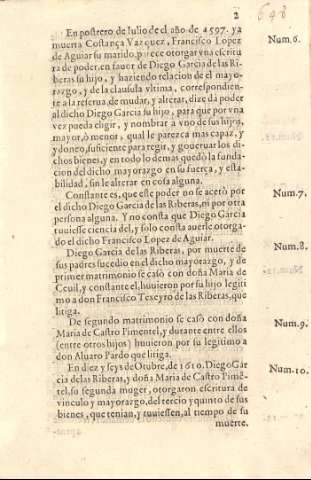 2
648
En postrero de Iulio de el año de 1597. ya
muerta Costança Vazquez, Francisco Lopez
de Aguiar su marido, parece otorgar vna escritu
ra de poder, en fauor de Diego Garcia de las Ri
beras su hijo, y haziendo relacion de el mayo-
razgo, y de la clausula vltima, correspondien-
te a la reserua, de mudar, y alterar, dize dà poder
al dicho Diego Garcia su hijo, para que por vna
vez pueda eligir, y nombrar à vno de sus hijos,
mayor, ò menor, qual le parezca mas capaz, y
ydoneo, suficiente para regir, y gouernar los di-
chos bienes, y en todo lo demas quedò la funda-
cion del dicho mayorazgo en su fuerça, y esta-
bilidad, sin le alterar en cosa alguna.
Num.6.
Constante es, que este poder no se acetò por
el dicho Diego Garcia de las Riberas, ni por otra
persona alguna. Y no consta que Diego Garcia
tuuiesse ciencia del, y solo consta auerle otorga-
do el dicho Francisco Lopez de Aguiar.
Num.7.
Diego Garcia de las Riberas, por muerte de
sus padres sucedio en el dicho mayorazgo, y de
primer matrimonio se casò con doña Maria de
Ceuil, y constante el, huuieron por su hijo legiti
mo a don Francisco Texeyro de las Riberas, que
litiga.
Num.8.
De segundo matrimonio se casò con doña
Maria de Castro Pimentel, y durante entre ellos
(entre otros hijos) huuieron por su legitimo a
don Aluaro Pardo que litiga.
Num.9.
En diez y seys de Otubre, de 1610. Diego Gar
cia de las Riberas, y doña Maria de Castro Pimẽ-
tel, su segunda muger, otorgaron escritura de
vinculo y mayorazgo, del tercio y quinto de sus
bienes, que tenian, y tuuiessen, al tiempo de su
muerte.
Num.10.